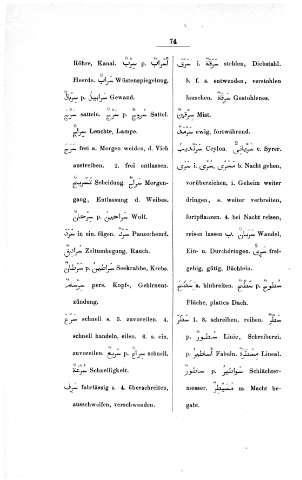 74
Röhre, Kanal. سِرْبٌ p. أَسْرَابٌ
Heerde. سَرَابٌ Wüstenspiegelung.
سِرْبَالٌ p. سَرَابِيلُ Gewand.
سَرَجَ satteln. سَرْجٌ p. سُرُوجٌ Sattel.
سِرَاجٌ Leuchte, Lampe.
سَرَحَ frei a. Morgen weiden, d. Vieh
austreiben. 2. frei entlassen.
تَسْرِيحٌ Scheidung. سَرَاحٌ Morgen-
gang, Entlassung d. Weibes.
سِرْحَانٌ p. سَرَاحِينُ Wolf.
سَرَدَ in ein. fügen. سَرْدٌ Panzerhemd.
سُرَادِقٌ Zeltumhegung, Rauch.
سَرَطَانٌ p. سَرَاطِينُ Seekrabbe, Krebs.
سِرْسَامٌ pers. Kopf-, Gehirnent-
zündung.
سَرُعَ schnell s. 3. zuvoreilen. 4.
schnell handeln, eilen. 6. s. ein.
zuvoreilen. سَرِيعٌ p. سِرَاعٌ schnell.
سُرْعَةٌ Schnelligkeit.
سَرِفَ fahrlässig s. 4. überschreiten,
ausschweifen, verschwenden.
سَرَقَ i. سَرِقَةٌ stehlen, Diebstahl.
8. f. a. entwenden, verstohlen
horchen. سَرِقَةٌ Gestohlenes.
سِرْقِينٌ Mist.
سَرْمَدٌ ewig, fortwährend.
سَرَنْدِيبُ Ceylon. سُرْيَانِيٌّ e. Syrer.
سَرَى i. سُرًى, مَسْرًى b. Nacht gehen,
vorüberziehen, i. Geheim weiter
dringen, s. weiter verbreiten,
fortpflanzen. 4. bei Nacht reisen,
reisen lassen ب. سَرَيَانٌ Wandel,
Ein- u. Durchdringen. سَرِيٌّ frei-
gebig, gütig. Bächlein.
سَطَحَ a. hinbreiten. سَطْحٌ p. سُطُوحٌ
Fläche, plattes Dach.
سَطَرَ 1. 8. schreiben, reihen. سَطْرٌ
p. سُطُورٌ Linie, Schreiberei.
p. أَسَاطِيرُ Fabeln. مِسْطَرَةٌ Lineal.
سَاطُورٌ p. سَوَاطِيرُ Schlächter-
messer. مُسَيْطِرٌ m. Macht be-
gabt.